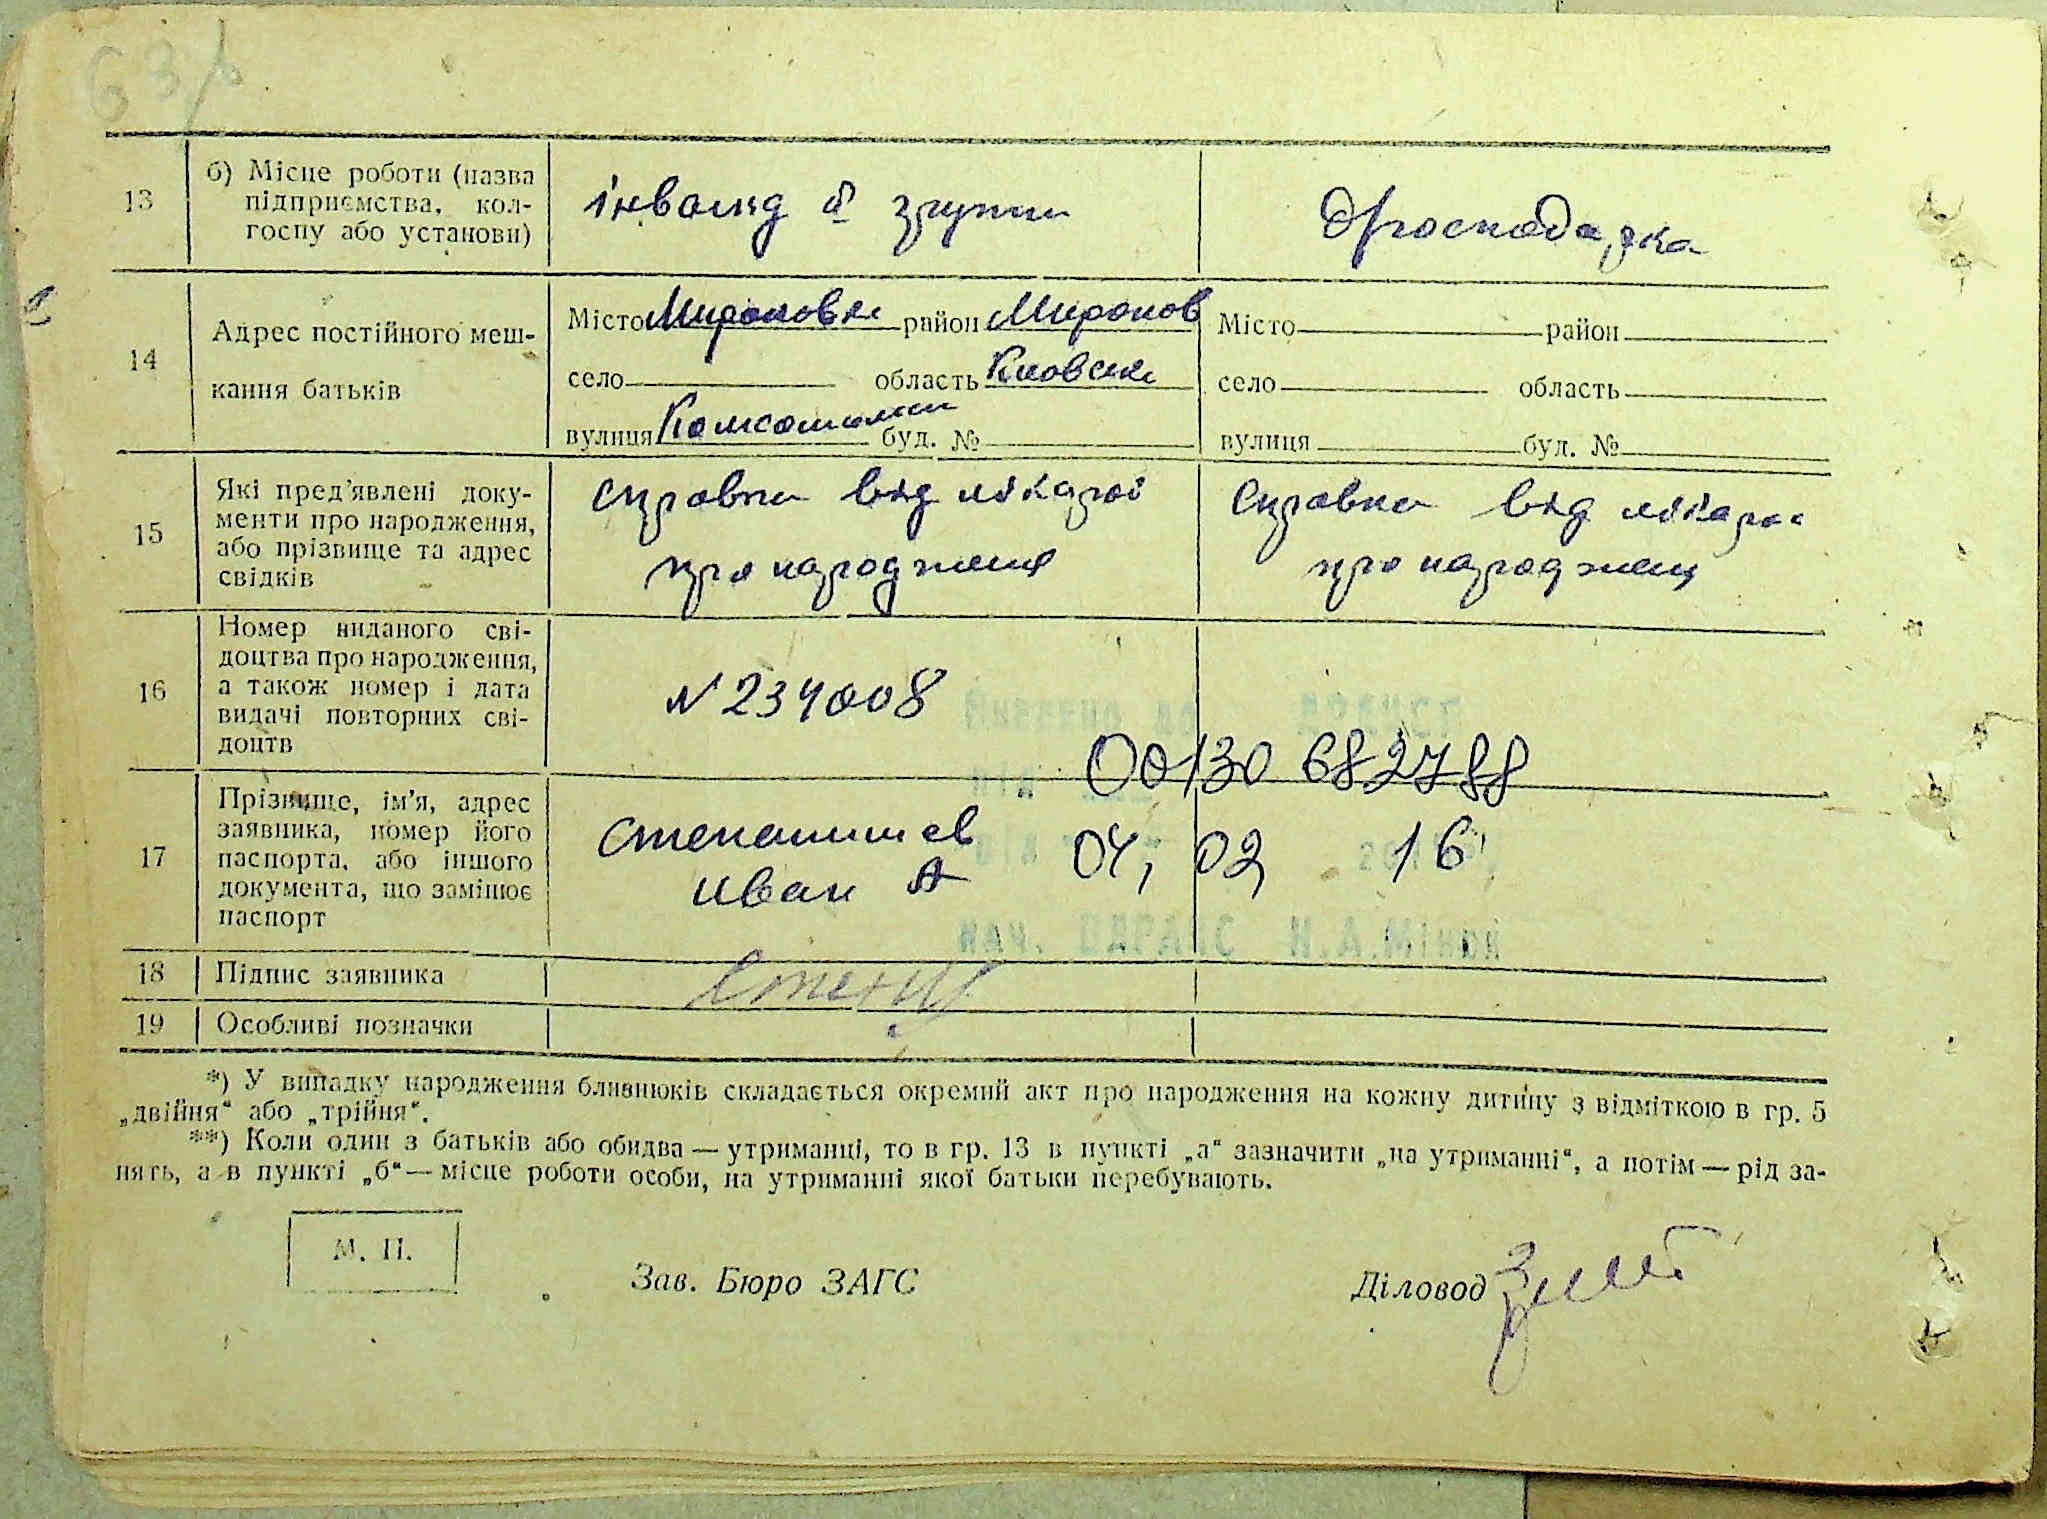 63
13
б) Місце роботи (назва
підприємства, кол-
госпу або установи)
інвалід ІІ групи
Дгосподарка
14
Адрес постійного меш-
кання батьків
Місто Мироновка район Миронов
село область Киовска
вулиця Комсомолська буд. №
Місто район
село область
вулиця буд. №
15
Які пред’явлені доку-
менти про народження,
або прізвище та адрес
свідків
справка від лікарні
про народження
справка від лікарні
про народжен
16
Номер виданого сві-
доцтва про народження,
а також номер і дата
видачі повторних сві-
доцтв
N 234008
Внесено до ДРАЦСГ
00130 682788
17
Прізвище, ім’я, адрес
заявника, номер його
паспорта, або іншого
документа, що замінює
паспорт
Степанишев
Иван А
від 04, 02 16
нач. ВДРАЦС Н.А.Міной
18
Підпис заявника
19
Особливі позначки
*) У випадку народження близнюків складається окремий акт про народження на кожну дитину з відміткою в гр. 5
„двійня“ або „трійня“.
**) Коли один з батьків або обидва — утриманці, то в гр. 13 в пункті „а“ зазначити „на утриманні“, а потім — рід за-
нять, а в пункті „б“ — місце роботи особи, на утриманні якої батьки перебувають.
М. П.
Зав. Бюро ЗАГС
Діловод